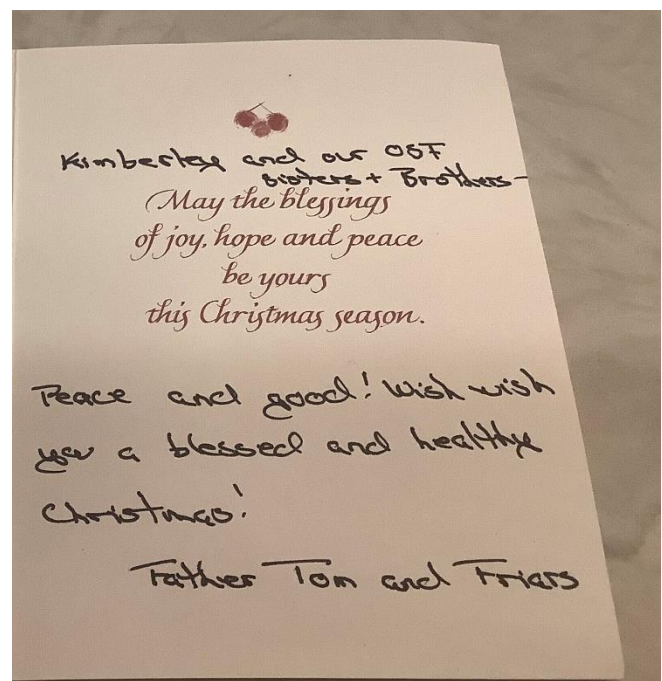 Kimberley and our OSF
sisters + Brothers -
May the blessings
of joy, hope and peace
be yours
this Christmas season.
Peace and good! Wish wish
you a blessed and healthye
Christmas!
Father Tom and Friars